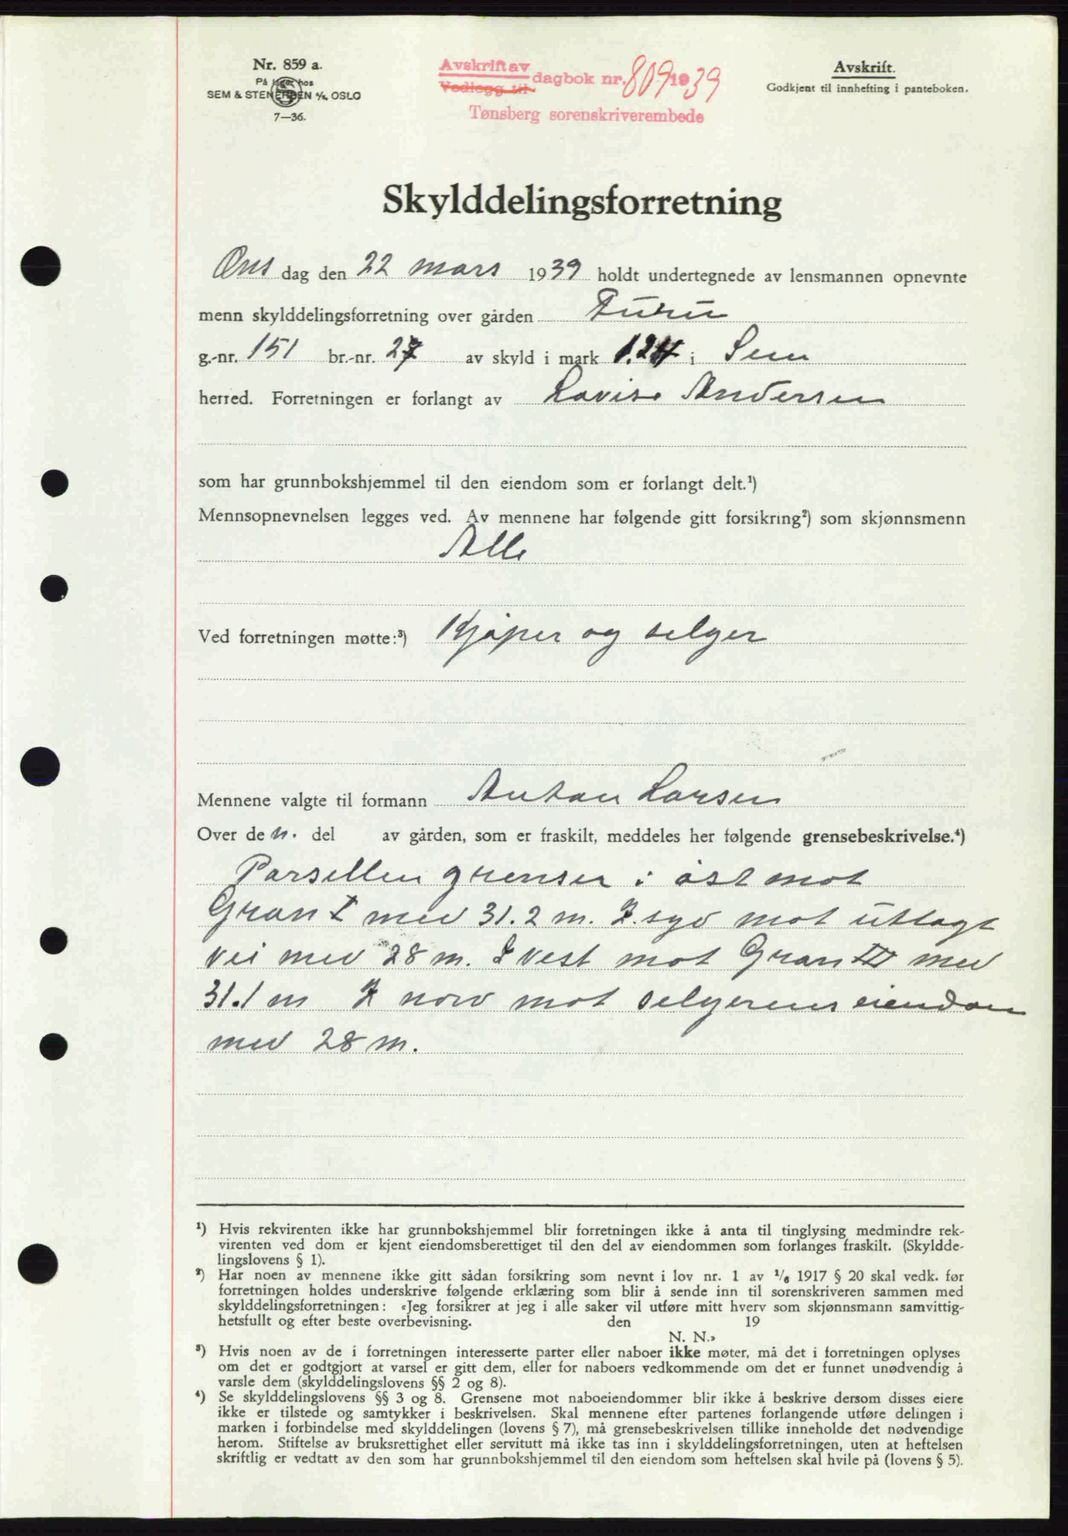 Nr. 859 a.
På lager hos
SEM & STENERSEN A/S, OSLO
7—36.
Avskrift av
Vedlegg til
dagbok nr. 809 1939
Tønsberg sorenskriverembede
Avskrift.
Godkjent til innhefting i panteboken.
Skylddelingsforretning
Ons dag den 22 mars 1939 holdt undertegnede av lensmannen opnevnte
menn skylddelingsforretning over gården Furu
g.-nr. 151 br.-nr. 27 av skyld i mark 1.24 i Sem
herred. Forretningen er forlangt av Lovise Andersen
som har grunnbokshjemmel til den eiendom som er forlangt delt.¹)
Mennsopnevnelsen legges ved. Av mennene har følgende gitt forsikring²) som skjønnsmenn
Alle
Ved forretningen møtte:³) Kjøper og selger
Mennene valgte til formann Anton Larsen
Over den. del av gården, som er fraskilt, meddeles her følgende grensebeskrivelse.⁴)
Parsellen grenser i øst mot
Gran I med 31.2 m. I syd mot utlagt
vei med 28 m. I vest mot Gran III med
31.1 m I nord mot selgerens eiendom
med 28 m.
¹) Hvis rekvirenten ikke har grunnbokshjemmel blir forretningen ikke å anta til tinglysing medmindre rek-
virenten ved dom er kjent eiendomsberettiget til den del av eiendommen som forlanges fraskilt. (Skyldde-
lingslovens § 1).
²) Har noen av mennene ikke gitt sådan forsikring som nevnt i lov nr. 1 av 1/6 1917 § 20 skal vedk. før
forretningen holdes underskrive følgende erklæring som blir å sende inn til sorenskriveren sammen med
skylddelingsforretningen: «Jeg forsikrer at jeg i alle saker vil utføre mitt hverv som skjønnsmann samvittig-
hetsfullt og efter beste overbevisning. den 19
N. N.»
³) Hvis noen av de i forretningen interesserte parter eller naboer ikke møter, må det i forretningen oplyses
om det er godtgjort at varsel er gitt dem, eller for naboers vedkommende om det er funnet unødvendig å
varsle dem (skylddelingslovens §§ 2 og 8).
⁴) Se skylddelingslovens §§ 3 og 8. Grensene mot naboeiendommer blir ikke å beskrive dersom disses eiere
ikke er tilstede og samtykker i beskrivelsen. Skal mennene efter partenes forlangende utføre delingen i
marken i forbindelse med skylddelingen (lovens § 7), må grensebeskrivelsen tillike inneholde det nødvendige
herom. Stiftelse av bruksrettighet eller servitutt må ikke tas inn i skylddelingsforretningen, uten at heftelsen
skriftlig er vedtatt av den som har grunnbokshjemmel til den eiendom som heftelsen skal hvile på (lovens § 5).